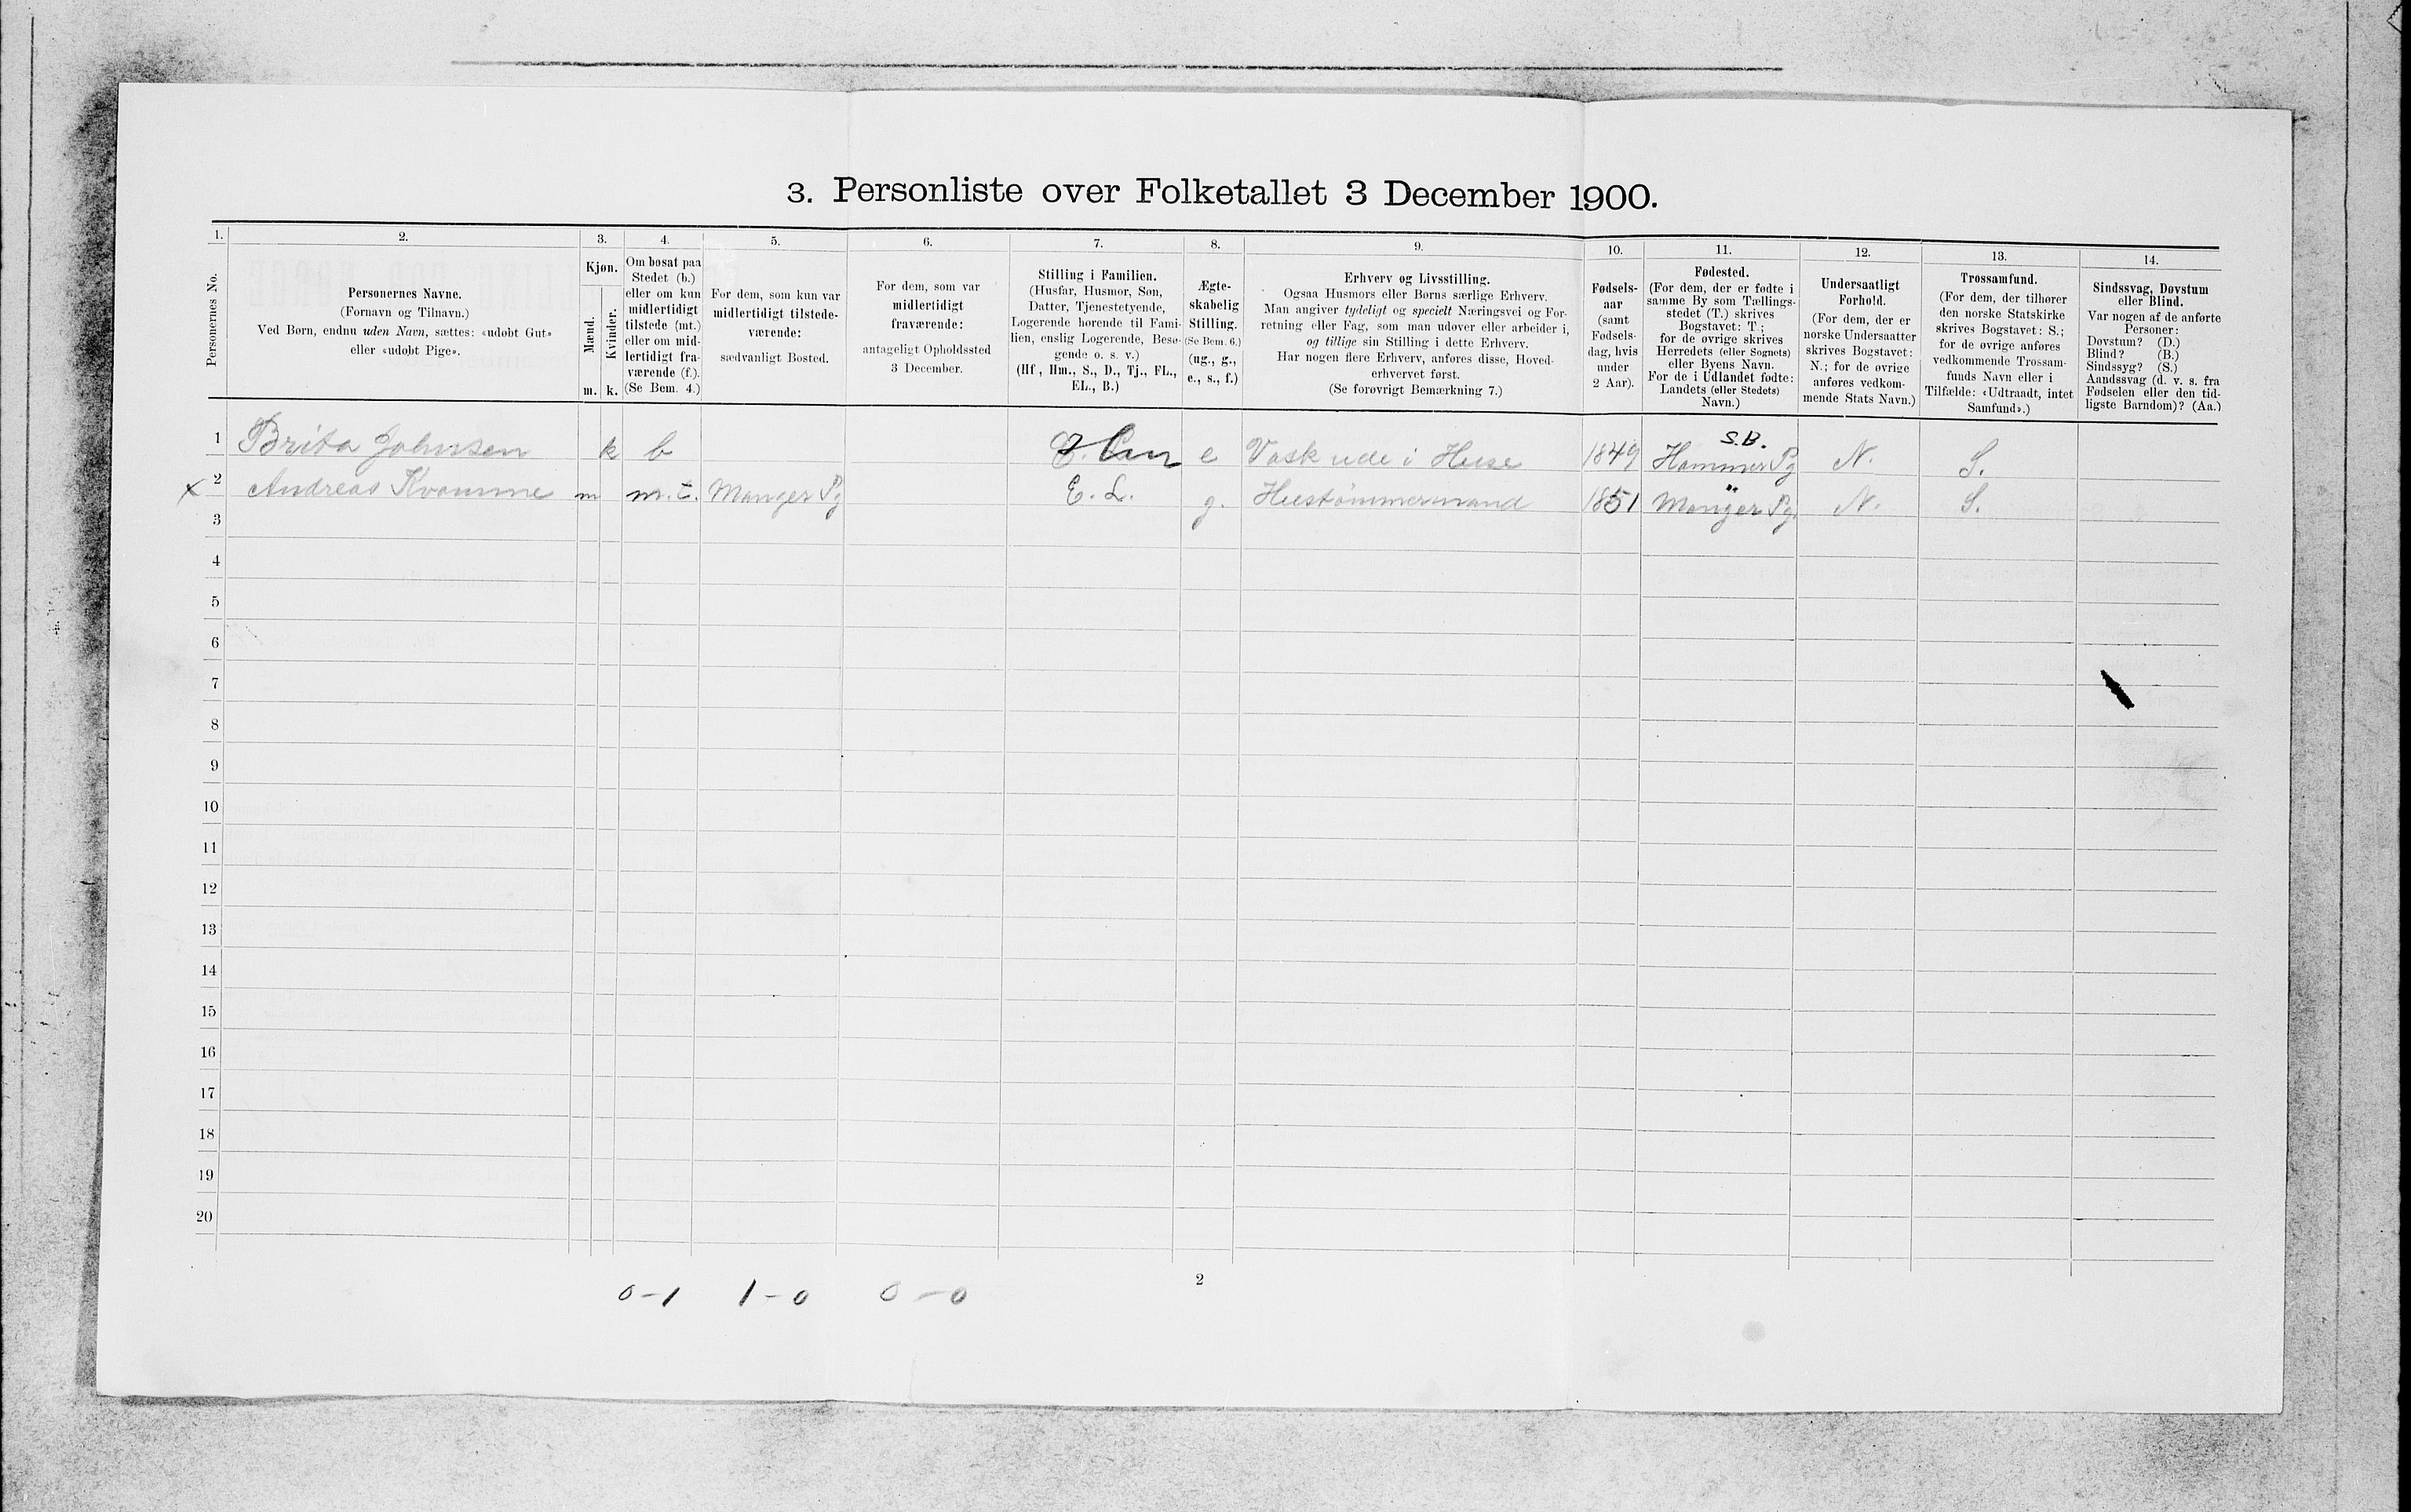 3. Personliste over Folketallet 3 December 1900.
1. 2. 3. 4. 5. 6. 7. 8. 9. 10. 11. 12. 13. 14.
Personernes No.
Personernes Navne.
(Fornavn og Tilnavn.)
Ved Børn, endnu uden Navn, sættes: «udøbt Gut»
eller «udøbt Pige».
Kjøn.
Mænd.
Kvinder.
m. k.
Om bosat paa
Stedet (b.)
eller om kun
midlertidigt
tilstede (mt.)
eller om mid-
lertidigt fra-
værende (f.).
(Se Bem. 4.)
For dem, som kun var
midlertidigt tilstede-
værende:
sædvanligt Bosted.
For dem, som var
midlertidigt
fraværende:
antageligt Opholdssted
3 December.
Stilling i Familien.
(Husfar, Husmor, Søn,
Datter, Tjenestetyende,
Logerende hørende til Fami-
lien, enslig Logerende, Besø-
gende o. s. v.)
(Hf., Hm., S., D., Tj., FL.,
EL., B.)
Ægte-
skabelig
Stilling.
(Se Bem. 6.)
(ug., g.,
e., s., f.)
Erhverv og Livsstilling.
Ogsaa Husmors eller Børns særlige Erhverv.
Man angiver tydeligt og specielt Næringsvei og For-
retning eller Fag, som man udøver eller arbeider i,
og tillige sin Stilling i dette Erhverv.
Har nogen flere Erhverv, anføres disse, Hoved-
erhvervet først.
(Se forøvrigt Bemærkning 7.)
Fødsels-
aar
(samt
Fødsels-
dag, hvis
under
2 Aar).
Fødested.
(For dem, der er fødte i
samme By som Tællings-
stedet (T.) skrives
Bogstavet: T;
for de øvrige skrives
Herredets (eller Sognets)
eller Byens Navn.
For de i Udlandet fødte:
Landets (eller Stedets)
Navn.)
Undersaatligt
Forhold.
(For dem, der er
norske Undersaatter
skrives Bogstavet:
N.; for de øvrige
anføres vedkom-
mende Stats Navn.)
Trossamfund.
(For dem, der tilhører
den norske Statskirke
skrives Bogstavet: S.;
for de øvrige anføres
vedkommende Trossam-
funds Navn eller i
Tilfælde: «Udtraadt, intet
Samfund».)
Sindssvag, Døvstum
eller Blind.
Var nogen af de anførte
Personer:
Døvstum? (D.)
Blind? (B.)
Sindssyg? (S.)
Aandssvag (d. v. s. fra
Fødselen eller den tid-
ligste Barndom)? (Aa.)
S.B.
1 Brita Johnsen k b e Vask ude i Huse 1849 Hammer Pg N. S.
x 2 Andreas Kvamme m m.t. Manger Pg E. L. g. Hustømmermand 1851 Manger Pg. N. S.
3
4
5
6
7
8
9
10
11
12
13
14
15
16
17
18
19
20
0-1 1-0 0-0
2